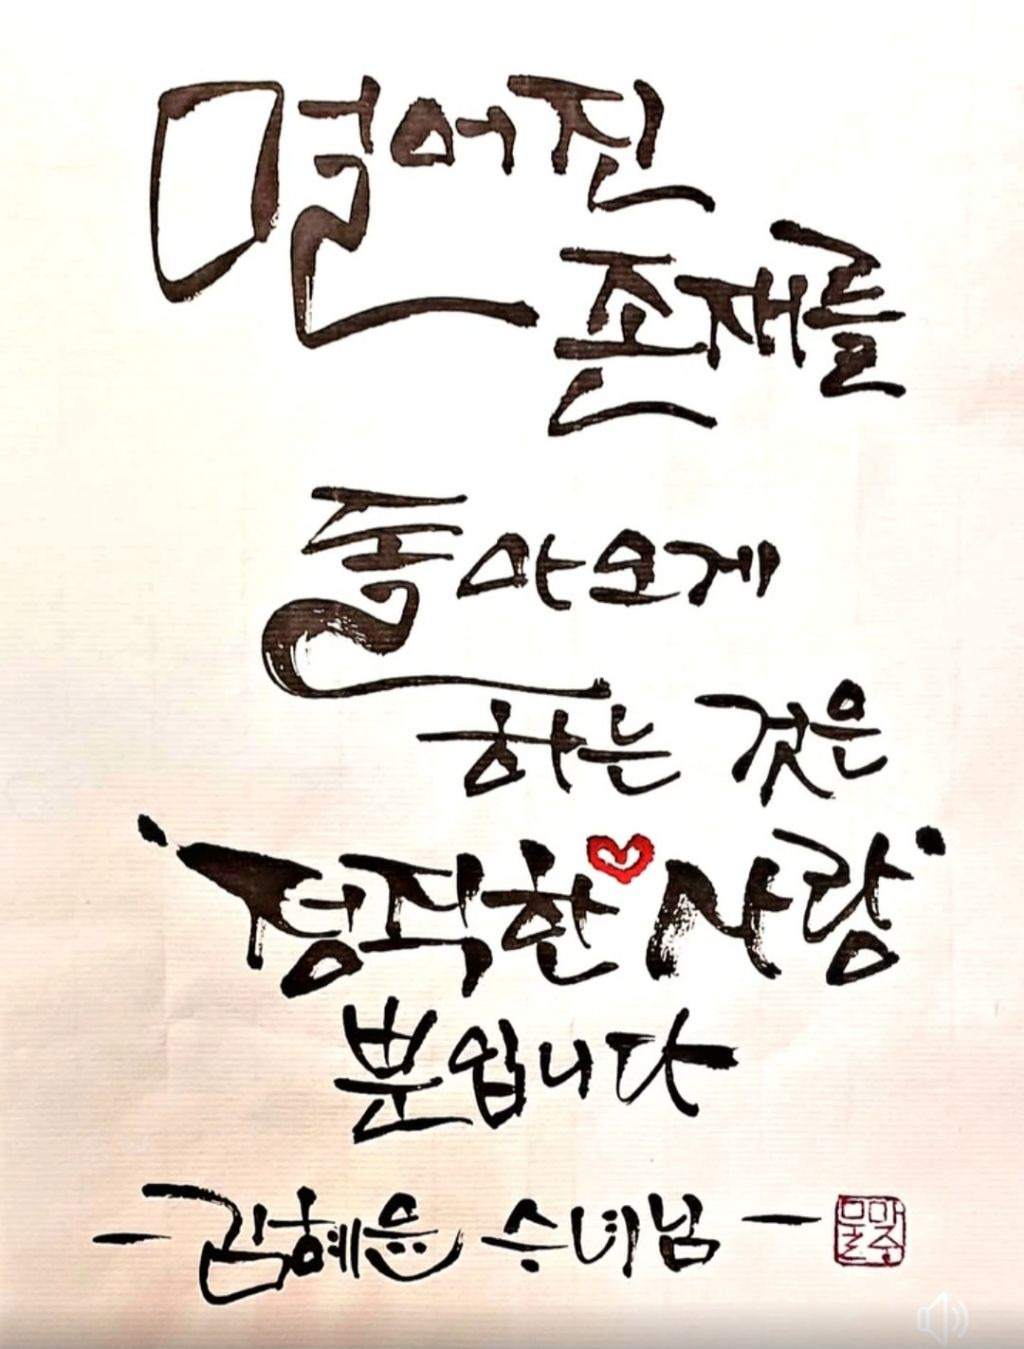 멀어진
존재를
돌아오게
하는 것은
'정직한 사랑'
뿐입니다
- 김혜윤 수녀님 -